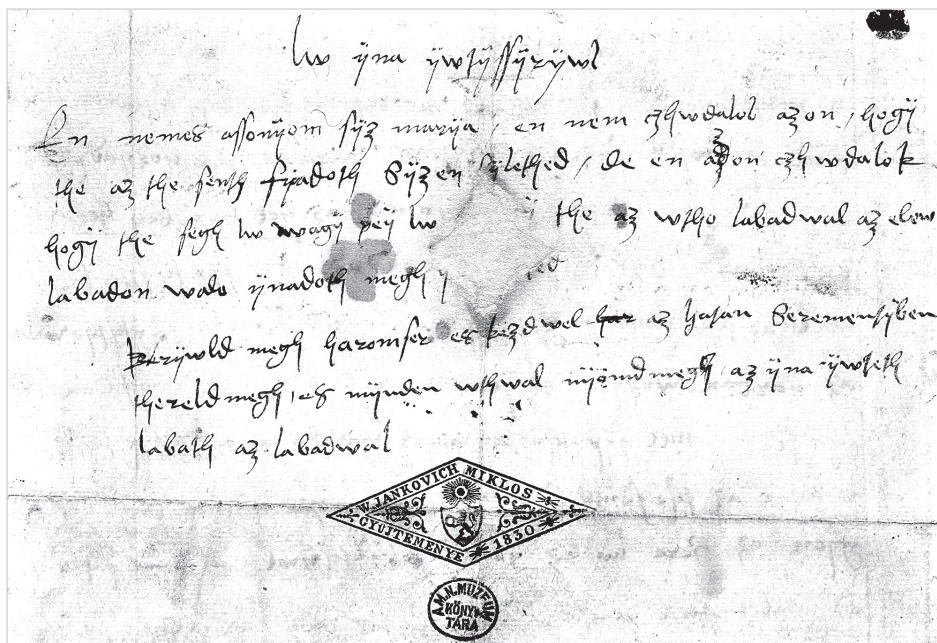 lw ÿna ÿwtÿssÿrÿwl
En nemes assonÿom sÿz marÿa, en nem czhwdalol azon, hogÿ
the az the senth fÿadoth Bÿzen zÿlethed, de en azon czhwdalok
hogÿ the segh lw wagÿ peÿ lw ÿ the az wtho labadwal az elew
labadon walo ÿnadoth megh ted
kerÿwld megh haromser es kezdwel az hasan Beremensÿben
thereld megh, es mÿnden wthwal nÿomd megh az ÿna ÿwteth
labath az labadwal
V. JANKOVICH MIKLOS
GYŰJTEMÉNYE 1830
A.M.N.MUZEUM
KÖNYV
TÁRA